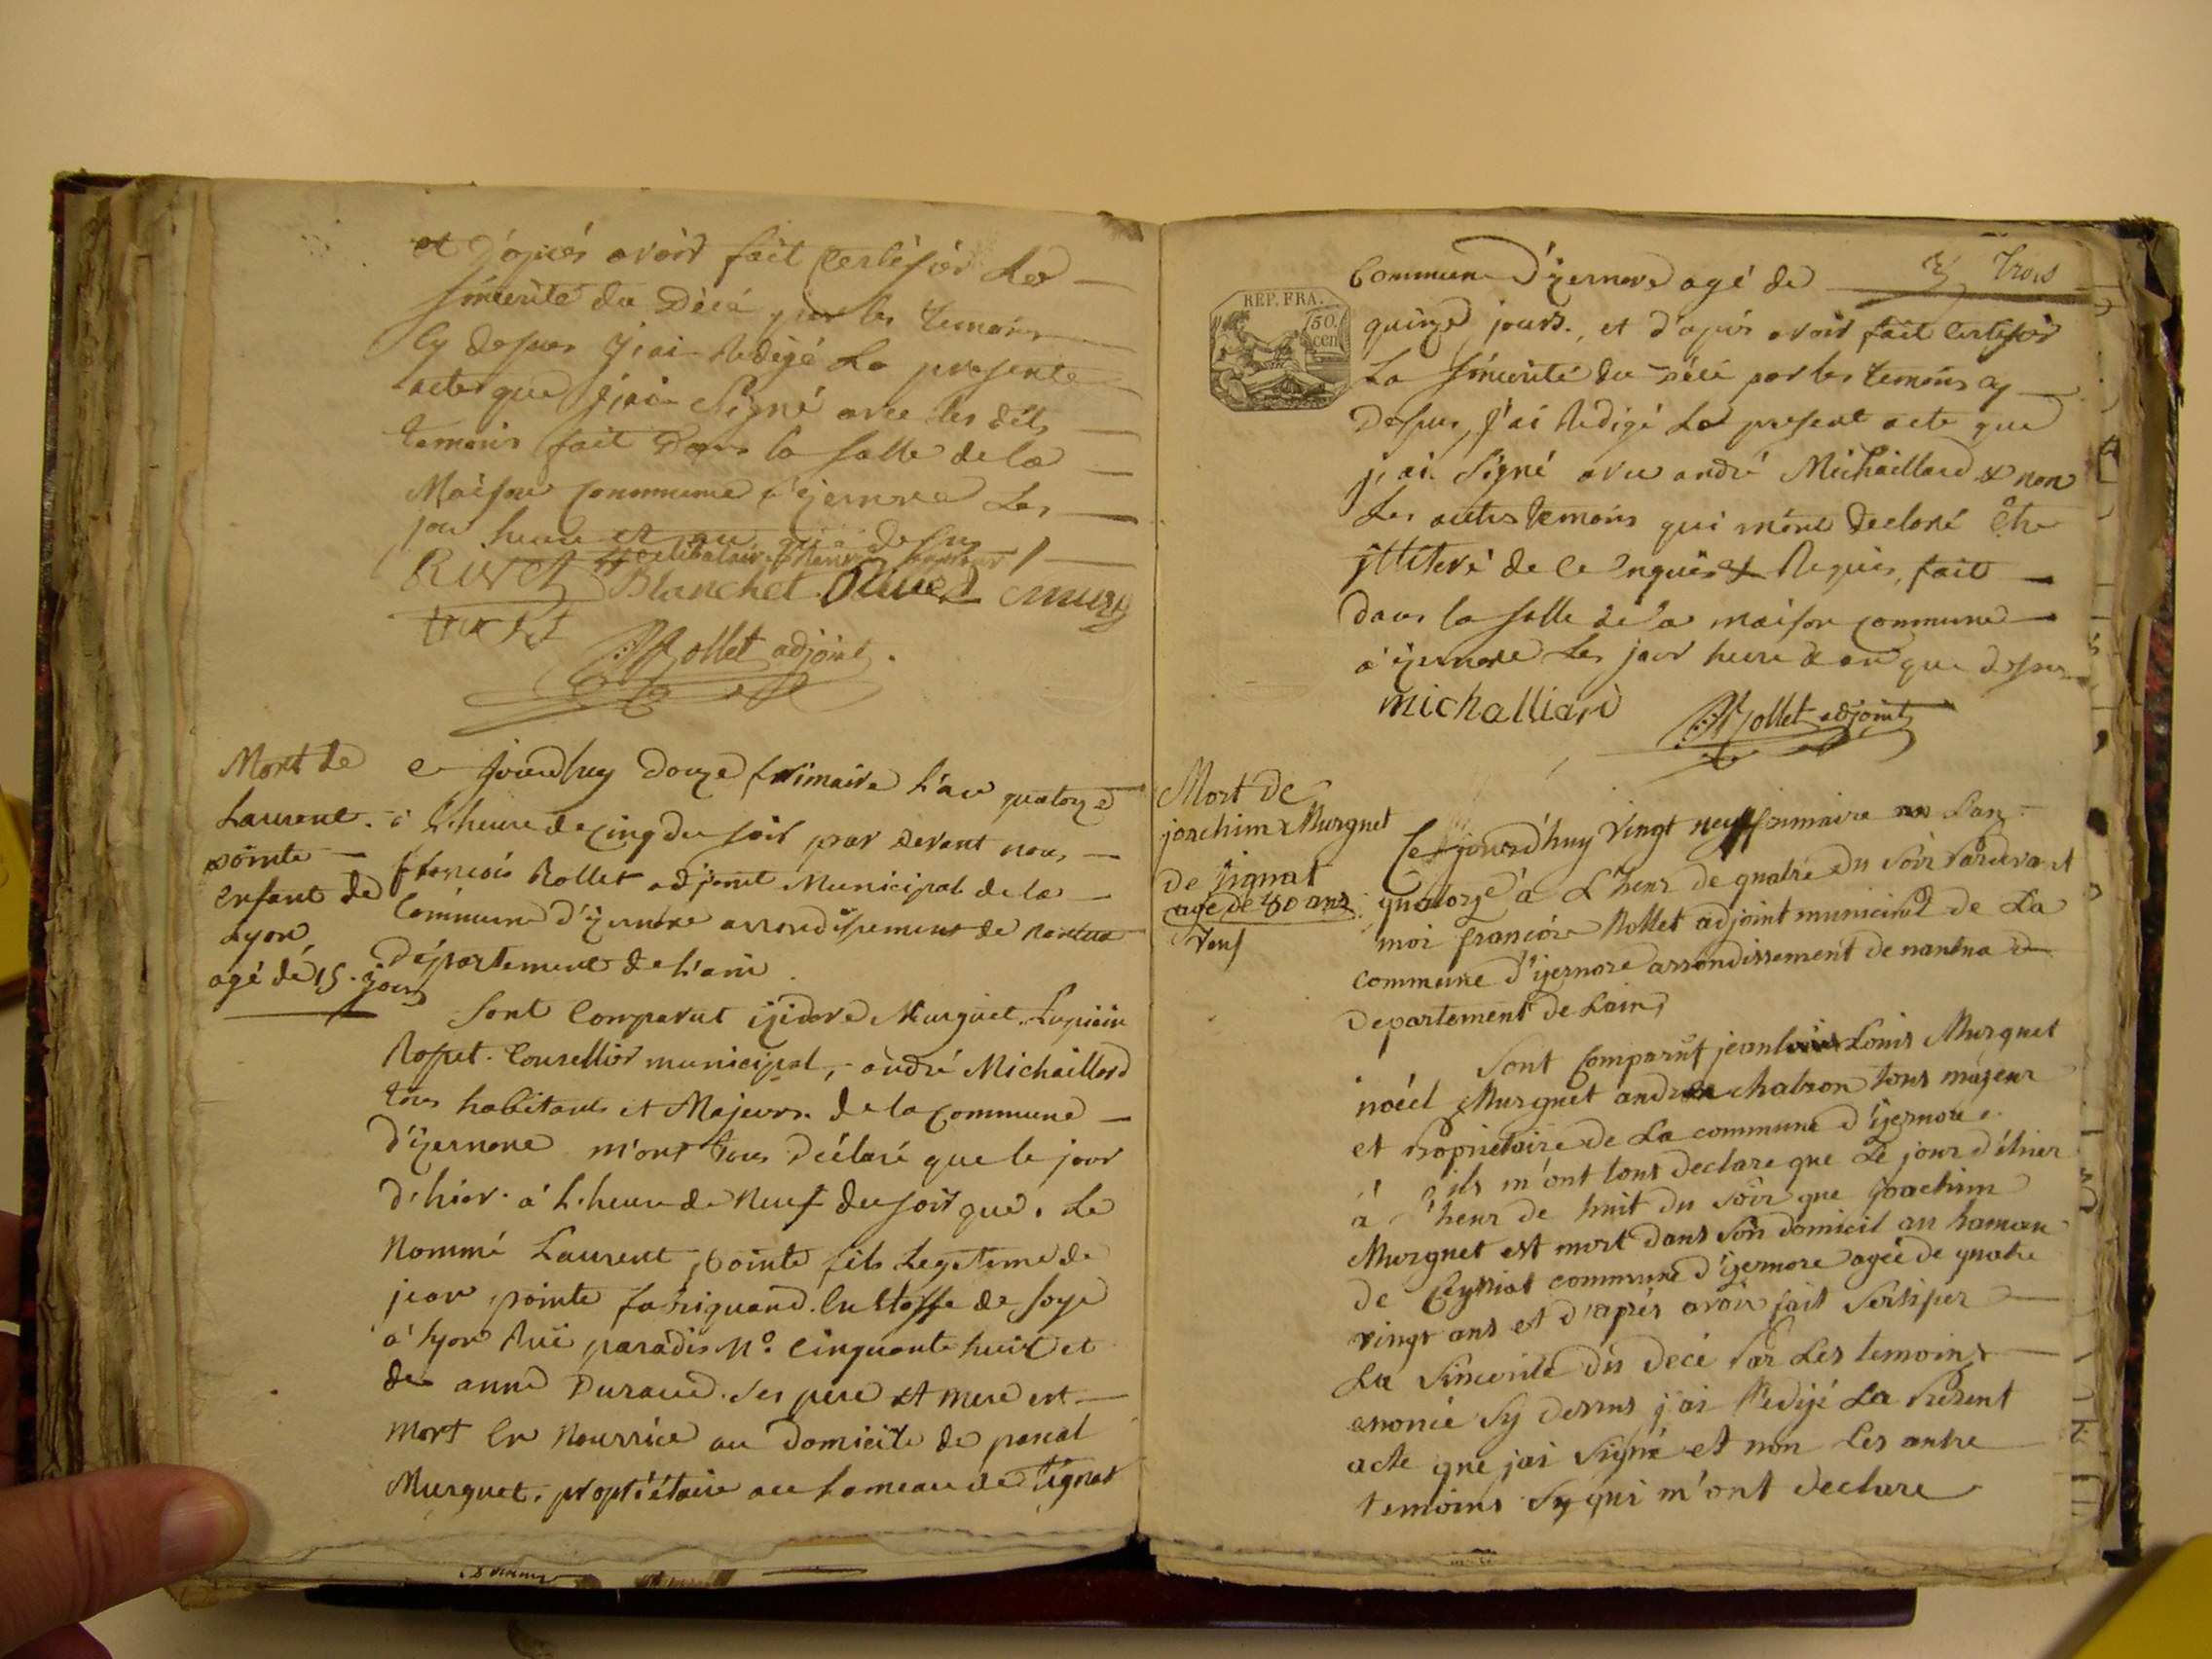 et d'après avoir fait Certifier La
sincerité du Décé par les temoins
Cy dessus j'ai Redigé La presente
acte que j'ai Signé avec les dits
temoins fait Dans la salle de la
Maison Commune d'izernore Les
jour heure et an que dessus
Rivet Blanchet Olivet
Rollet adjoint
Mort de
Laurent
pointe
enfant de
Lyon
agé de 15 jours
Ce jourdhuy douze frimaire L'an quatorze
à L'heure de Cinq du soir par devant nous
françois Rollet adjoint Municipal de la
Commune d'izernore arrondissement de nantua
Département de L'ain
Sont Comparut izidore Murguet Lupicin
Rosset Consellier municipal, andré Michaillard
tous habitants et Majeurs de la Commune
d'izernore m'ont tous Déclaré que le jour
d'hier à L'heure de Neuf du soir que Le
Nommé Laurent pointe fils Legitime de
jean pointe fabriquand En Etoffe de soye
à Lyon Rue paradis No Cinquante huit et
de anne Durand ses pere et mere est
mort En Nourrice au Domicile de pascal
Murguet propriétaire au hameau de tignat
Trois
REP. FRA.
50.
cen
Commune d'izernore agé de
quinze jours, et d'après avoir fait Certifier
La sincerité du Décé par les temoins cy
Dessus, j'ai Redigé Le present acte que
j'ai Signé avec andré Michaillard & non
Les autres temoins qui m'ont Declaré Etre
illiteré de Ce Enquis & Requis, fait
dans la salle de la maison Commune
à izernore Les jour heure & an que dessus
michalliard
Rollet adjoint
Mort de
joachim Murguet
de tignat
agé de 80 ans
Veuf
Ce jourd'huy vingt neuf frimaire L'an
quatorze à L'heur de quatre du soir Pardevant
moi françois Rollet adjoint municipal de La
commune d'izernore arrondissement de nantua
departement de Lain
Sont Comparut jean Louis Murguet
noéel Murguet andre chatron tous majeur
et Proprietaire de La commune d'izernore
ils m'ont tous declare que Le jour d'éhier
à L'heur de huit du soir que joachim
Murguet est mort dans son domicil au hameau
de Ceyssiat commune d'izernore agée de quatre
vingt ans et d'après avoir fait Sertifier
La Sincerité du decé Par Les temoins
enoncé Sy dessus j'ai Redijé La Present
acte que jai Signé et non Les autre
temoins Sy qui m'ont declare